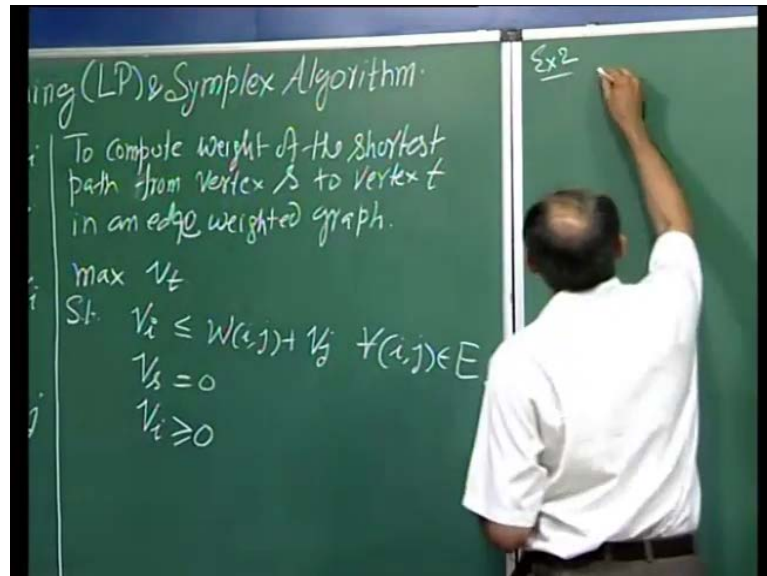 ing (LP) & Symplex Algorithm.
To compute weight of the shortest
path from vertex s to vertex t
in an edge weighted graph.
max v_t
St. v_i ≤ W(i,j) + v_j ∀(i,j) ∈ E
v_s = 0
v_i ≥ 0
Ex 2